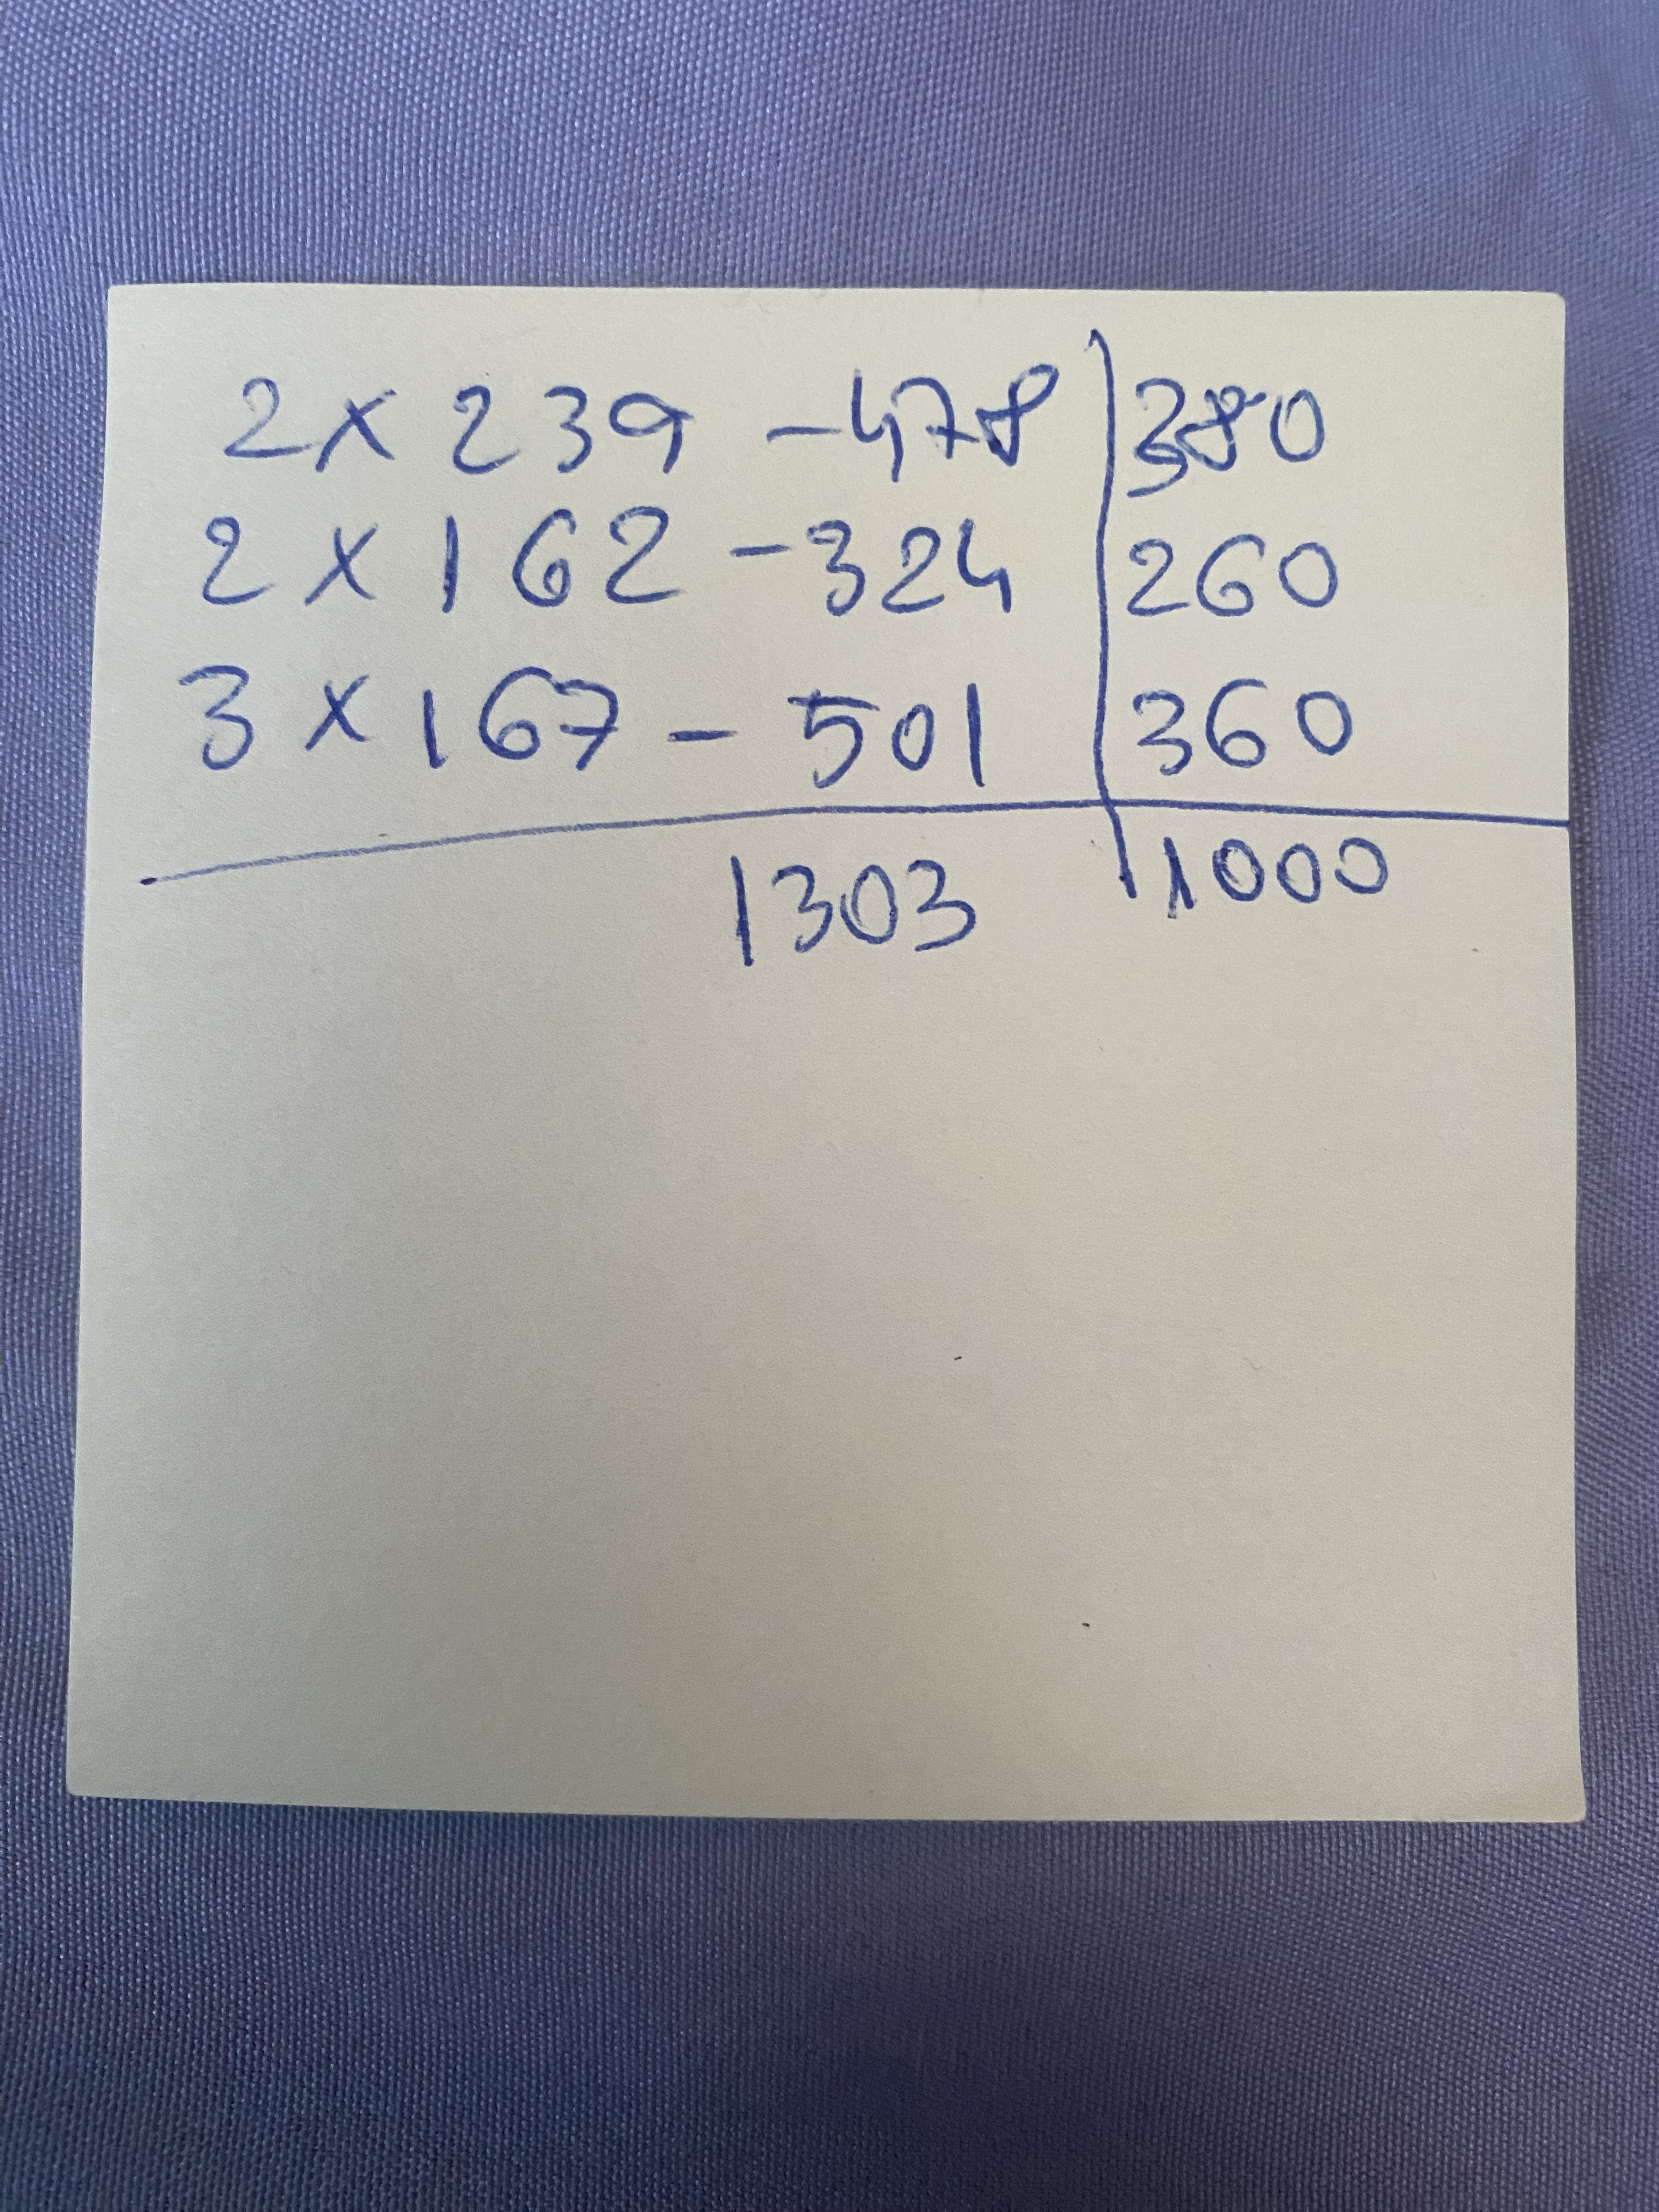 2 x 239 - 478 | 380
2 x 162 - 324 | 260
3 x 167 - 501 | 360
1303 | 1000